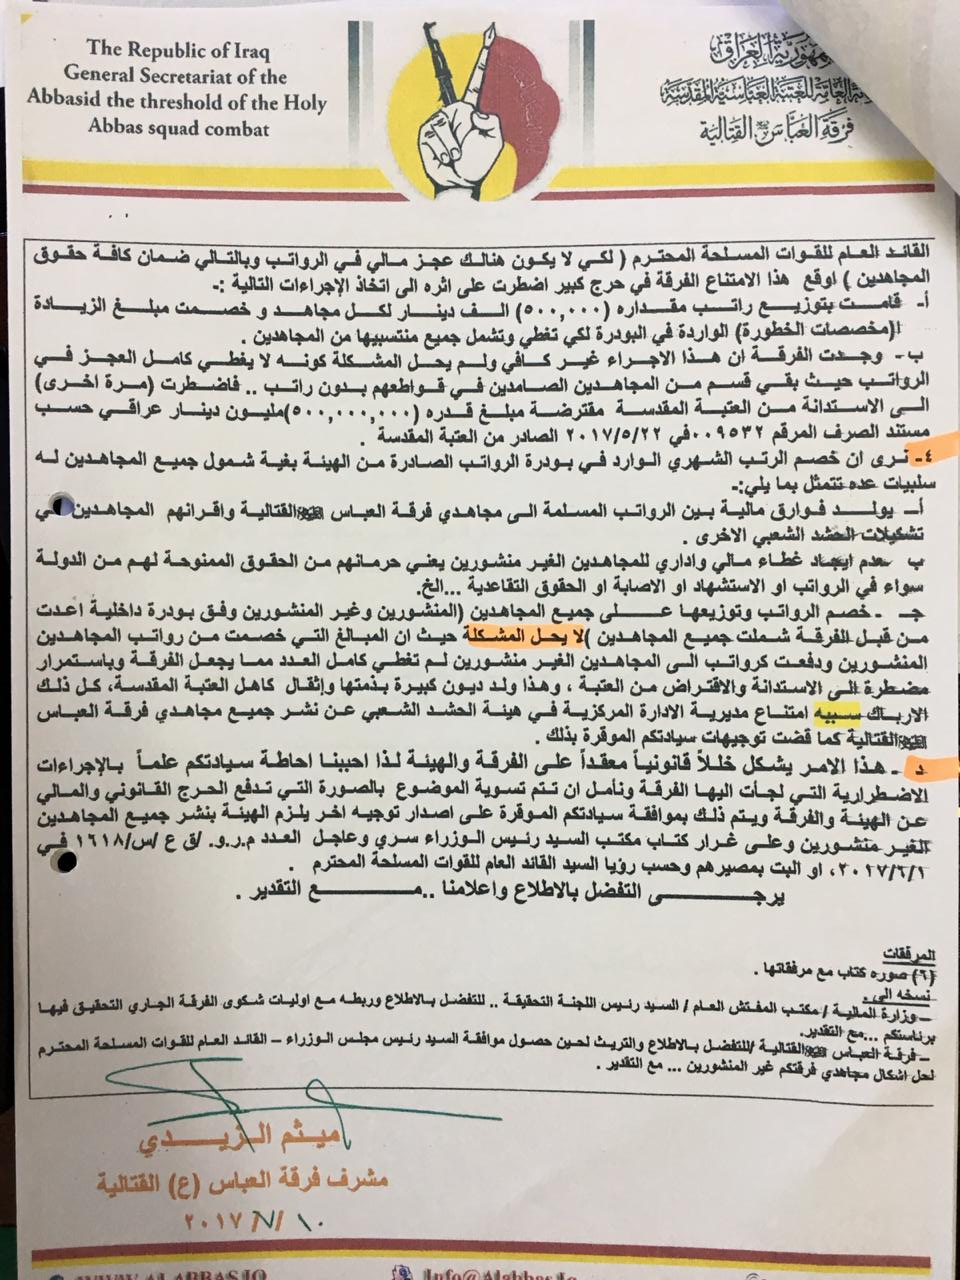 The Republic of Iraq
General Secretariat of the
Abbasid the threshold of the Holy
Abbas squad combat
فرقة العباس القتالية
القائد العام للقوات المسلحة المحترم ( لكي لا يكون هنالك عجز مالي في الرواتب وبالتالي ضمان كافة حقوق
المجاهدين ) اوقع هذا الامتناع الفرقة في حرج كبير اضطرت على اثره الى اتخاذ الإجراءات التالية :-
أ- قامت بتوزيع راتب مقداره (٥٠٠,٠٠٠) الف دينار لكل مجاهد و خصمت مبلغ الزيادة
(مخصصات الخطورة) الواردة في البودرة لكي تغطي وتشمل جميع منتسبيها من المجاهدين .
ب- وجدت الفرقة ان هذا الاجراء غير كافي ولم يحل المشكلة كونه لا يغطي كامل العجز في
الرواتب حيث بقي قسم من المجاهدين الصامدين في قواطعهم بدون راتب .. فاضطرت (مرة اخرى)
الى الاستدانة من العتبة المقدسة مقترضة مبلغ قدره (٥٠٠,٠٠٠,٠٠٠)مليون دينار عراقي حسب
مستند الصرف المرقم ٠٠٩٥٣٢في ٢٠١٧/٥/٢٢ الصادر من العتبة المقدسة .
٤- نرى ان خصم الرتب الشهري الوارد في بودرة الرواتب الصادرة من الهيئة بغية شمول جميع المجاهدين له
سلبيات عده تتمثل بما يلي:-
أ- يولد فوارق مالية بين الرواتب المسلمة الى مجاهدي فرقة العباس القتالية واقرانهم المجاهدين في
تشكيلات الحشد الشعبي الاخرى .
ب عدم ايجاد غطاء مالي واداري للمجاهدين الغير منشورين يعني حرمانهم من الحقوق الممنوحة لهم من الدولة
سواء في الرواتب او الاستشهاد او الاصابة او الحقوق التقاعدية ...الخ.
جـ - خصم الرواتب وتوزيعها على جميع المجاهدين (المنشورين وغير المنشورين وفق بودرة داخلية اعدت
من قبل الفرقة شملت جميع المجاهدين )لا يحل المشكلة حيث ان المبالغ التي خصمت من رواتب المجاهدين
المنشورين ودفعت كرواتب الى المجاهدين الغير منشورين لم تغطي كامل العدد مما يجعل الفرقة وباستمرار
مضطرة الى الاستدانة والاقتراض من العتبة ، وهذا ولد ديون كبيرة بذمتها وإثقال كاهل العتبة المقدسة، كل ذلك
الارباك سببه امتناع مديرية الادارة المركزية في هيئة الحشد الشعبي عن نشر جميع مجاهدي فرقة العباس
القتالية كما قضت توجيهات سيادتكم الموقرة بذلك .
د - هذا الامر يشكل خللاً قانونياً معقداً على الفرقة والهيئة لذا احببنا احاطة سيادتكم علماً بالإجراءات
الاضطرارية التي لجأت اليها الفرقة ونأمل ان تتم تسوية الموضوع بالصورة التي تدفع الحرج القانوني والمالي
عن الهيئة والفرقة ويتم ذلك بموافقة سيادتكم الموقرة على اصدار توجيه اخر يلزم الهيئة بنشر جميع المجاهدين
الغير منشورين وعلى غرار كتاب مكتب السيد رئيس الوزراء سري وعاجل العدد م.ر.و. /ق ع /س/١٦١٨ في
٢٠١٧/٦/١، او البت بمصيرهم وحسب رؤيا السيد القائد العام للقوات المسلحة المحترم .
يرجى التفضل بالاطلاع واعلامنا ..مع التقدير .
المرفقات
(٦) صوره كتاب مع مرفقاتها .
نسخه الى .
-وزارة المالية / مكتب المفتش العام / السيد رئيس اللجنة التحقيقة .. للتفضل بالاطلاع وربطه مع اوليات شكوى الفرقة الجاري التحقيق فيها
برئاستكم ...مع التقدير.
- فرقة العباس القتالية /للتفضل بالاطلاع والتريث لحين حصول موافقة السيد رئيس مجلس الوزراء – القائد العام للقوات المسلحة المحترم
لحل اشكال مجاهدي فرقتكم غير المنشورين ... مع التقدير .
ميثم الزيدي
مشرف فرقة العباس (ع) القتالية
٢٠١٧/٧/١٠
WWW.ALABBAS.IQ
Info@Alabbas.Iq